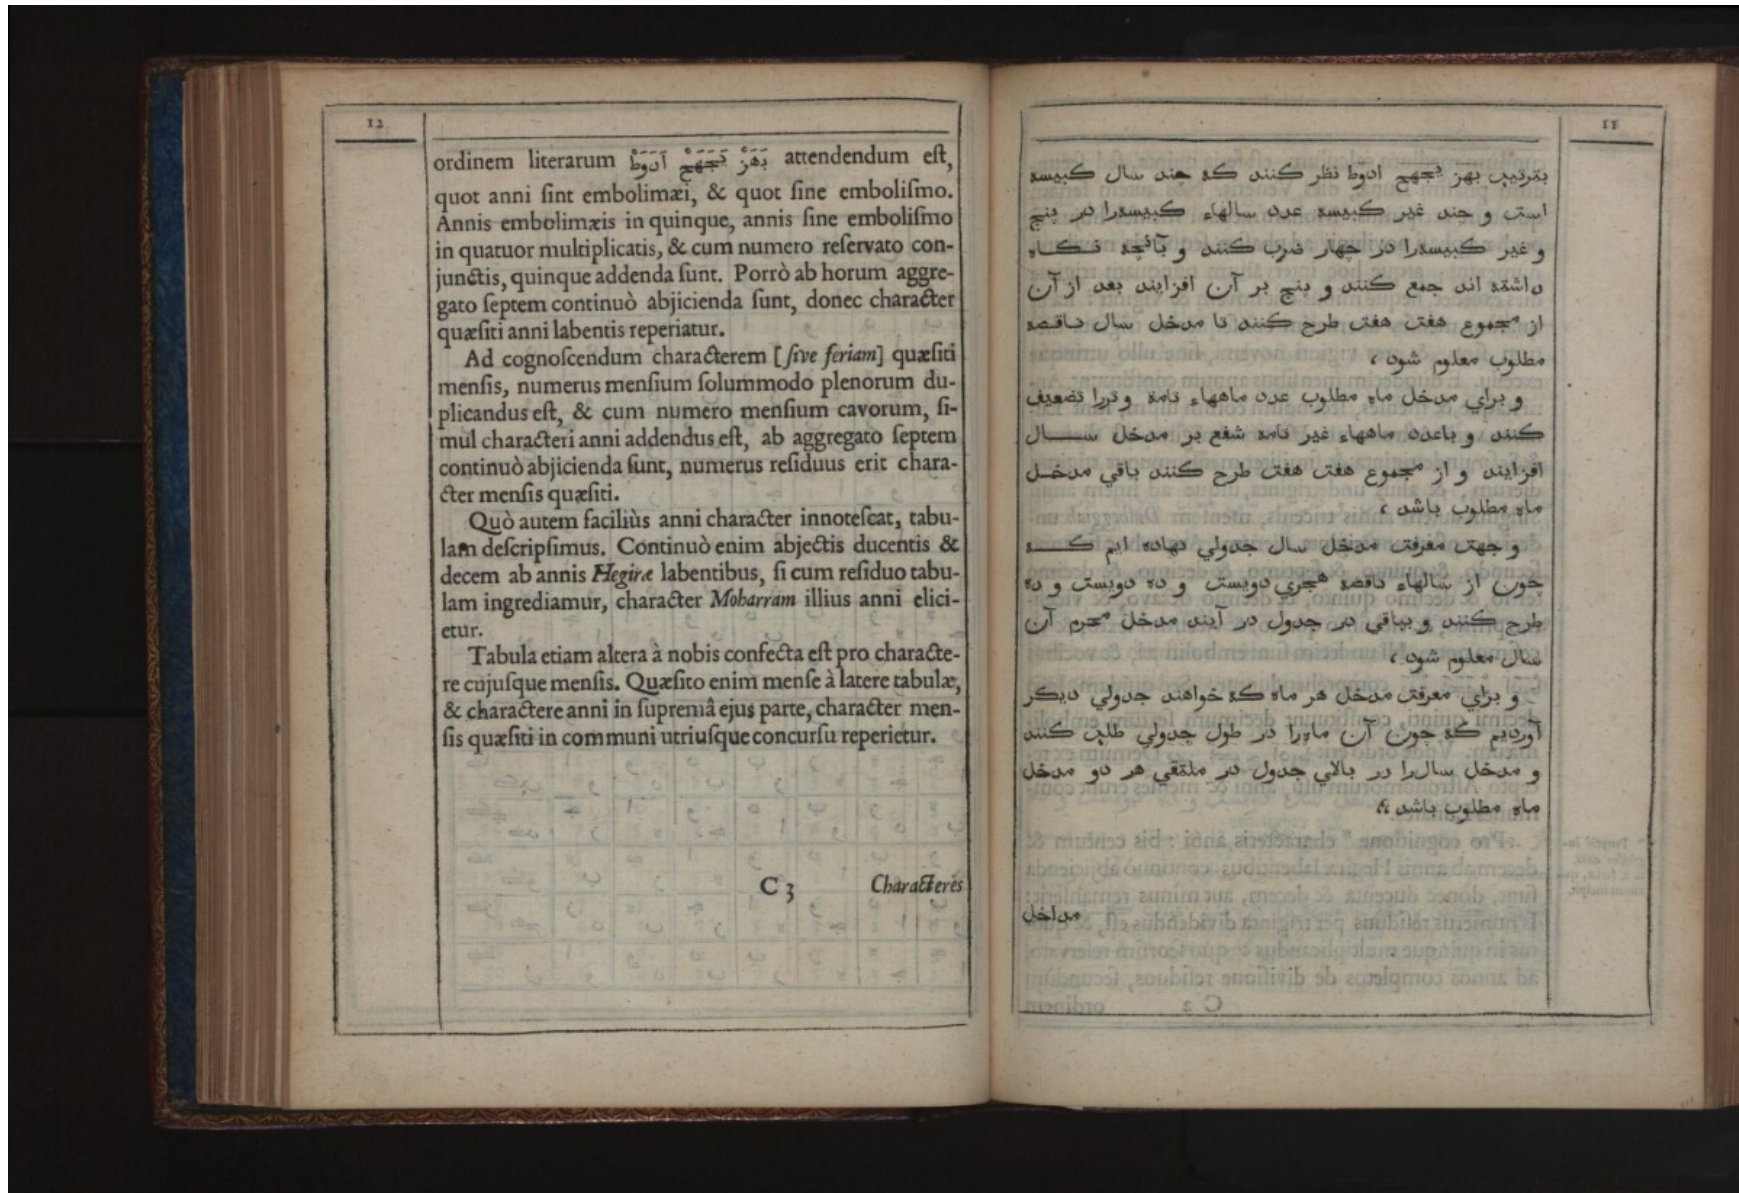 12
ordinem literarum بَهَزْ يَجَهَحْ اَدَوَطْ attendendum eſt,
quot anni ſint embolimæi, & quot ſine emboliſmo.
Annis embolimæis in quinque, annis ſine emboliſmo
in quatuor multiplicatis, & cum numero reſervato con-
junctis, quinque addenda ſunt. Porrò ab horum aggre-
gato ſeptem continuò abjicienda ſunt, donec character
quæſiti anni labentis reperiatur.
Ad cognoſcendum characterem [ſive feriam] quæſiti
menſis, numerus menſium ſolummodo plenorum du-
plicandus eſt, & cum numero menſium cavorum, ſi-
mul characteri anni addendus eſt, ab aggregato ſeptem
continuò abjicienda ſunt, numerus reſiduus erit chara-
cter menſis quæſiti.
Quò autem faciliùs anni character innoteſcat, tabu-
lam deſcripſimus. Continuò enim abjectis ducentis &
decem ab annis Hegiræ labentibus, ſi cum reſiduo tabu-
lam ingrediamur, character Moharram illius anni elici-
etur.
Tabula etiam altera à nobis confecta eſt pro characte-
re cujuſque menſis. Quæſito enim menſe à latere tabulæ,
& charactere anni in ſupremâ ejus parte, character men-
ſis quæſiti in communi utriuſque concurſu reperietur.
C 3 Characteres
11
بترتيب بهز يجهح ادوط نظر كنند كه چند سال كبيسه
است و چند غير كبيسه عدد سالهاء كبيسه‌را در پنج
و غير كبيسه‌را در چهار ضرب كنند و بآنچه نــكــاه
داشته اند جمع كنند و پنج بر آن افزايند بعد از آن
از مجموع هفت هفت طرح كنند تا مدخل سال ناقـصه
مطلوب معلوم شود ،
و براي مدخل ماه مطلوب عدد ماههاء تامه وتررا تضعيف
كنند و باعدد ماههاء غير تامه شفع بر مدخل ســـال
افزايند و از مجموع هفت هفت طرح كنند باقي مدخــل
ماه مطلوب باشد ،
و جهت معرفت مدخل سال جدولي نهاده ايم كــــه
چون از سالهاء ناقصه هجري دويست و ده دويست و ده
طرح كنند و بباقي در جدول در آيند مدخل محرم آن
سال معلوم شود ،
و براي معرفت مدخل هر ماه كه خواهند جدولي ديكر
آورديم كه چون آن ماه‌را در طول جدولي طلب كنند
و مدخل سال‌را در بالاي جدول در ملتقي هر دو مدخل
ماه مطلوب باشد ،
مداخل